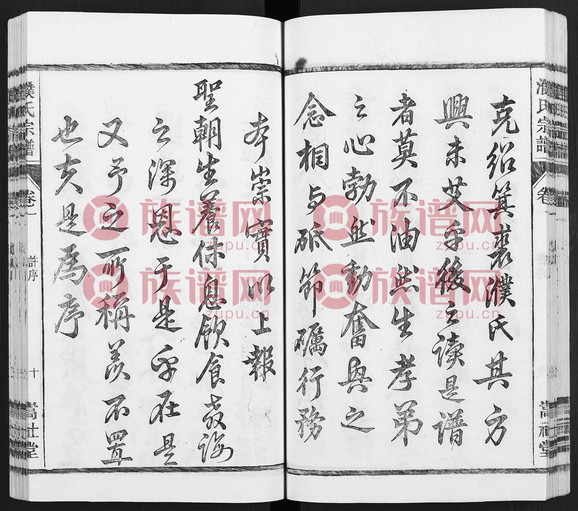 克紹箕裘濮氏其方
興未艾乎後之讀是譜
者莫不油然生孝弟
之心勃然動奮興之
念相與砥節礪行務
本崇實以上報
聖朝生養休息飲食教誨
之深恩于是乎在是
又予之所稱羨不置
也夫是為序
濮氏宗譜
卷一
濮氏宗譜
卷一
序
十
族谱网
zupu.cn
族谱网
zupu.cn
族谱网
zupu.cn
族谱网
zupu.cn
族谱网
zupu.cn
族谱网
zupu.cn